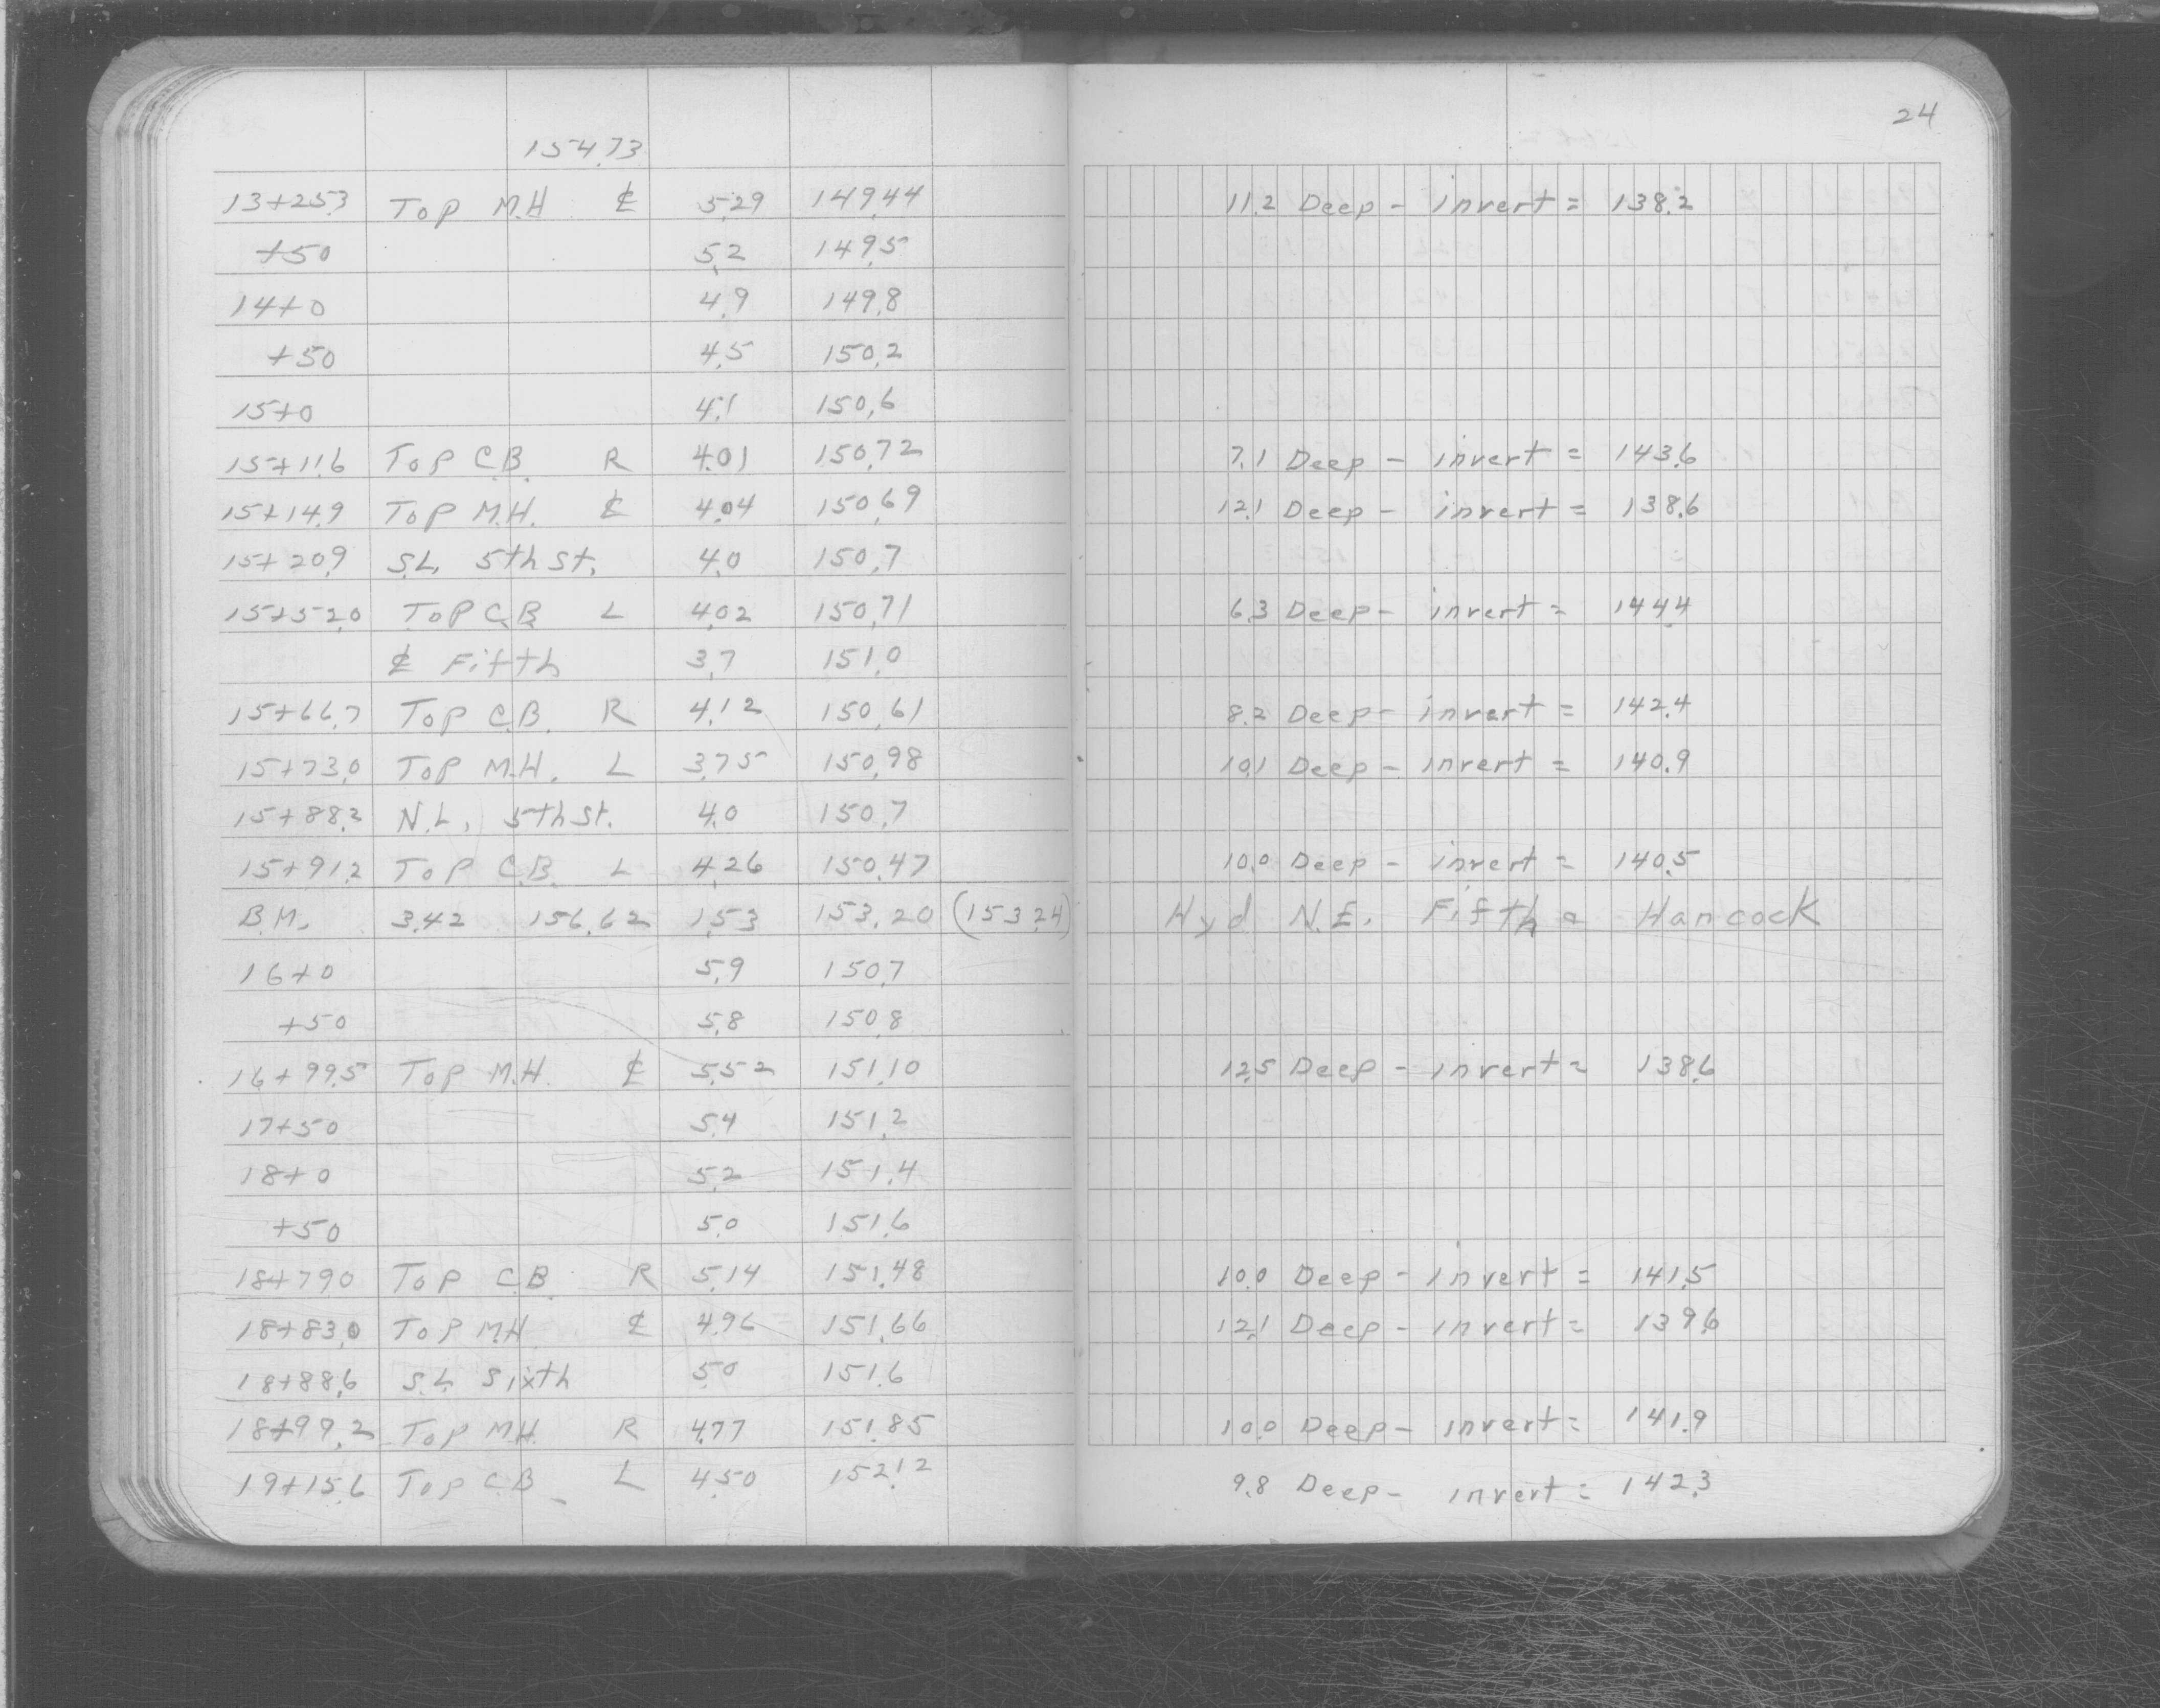 24
154.73
13+25.3 Top M.H ℄ 5.29 149.44 11.2 Deep - invert = 138.2
+50 5.2 149.5
14+0 4.9 149.8
+50 4.5 150.2
15+0 4.1 150.6
15+11.6 Top C.B. R 4.01 150.72 7.1 Deep - invert = 143.6
15+14.9 Top M.H. ℄ 4.04 150.69 12.1 Deep - invert = 138.6
15+20.9 S.L. 5th St. 4.0 150.7
15+52.0 Top C.B. L 4.02 150.71 6.3 Deep - invert = 144.4
℄ Fifth 3.7 151.0
15+66.7 Top C.B. R 4.12 150.61 8.2 Deep - invert = 142.4
15+73.0 Top M.H. L 3.75 150.98 10.1 Deep - invert = 140.9
15+88.2 N.L. 5th St. 4.0 150.7
15+91.2 Top C.B. L 4.26 150.47 10.0 Deep - invert = 140.5
B.M. 3.42 156.62 1.53 153.20 (153.24) Hyd N.E. Fifth & Hancock
16+0 5.9 150.7
+50 5.8 150.8
16+99.5 Top M.H. ℄ 5.52 151.10 12.5 Deep - invert = 138.6
17+50 5.4 151.2
18+0 5.2 151.4
+50 5.0 151.6
18+79.0 Top C.B. R 5.14 151.48 10.0 Deep - invert = 141.5
18+83.0 Top M.H ℄ 4.96 151.66 12.1 Deep - invert = 139.6
18+88.6 S.L. Sixth 5.0 151.6
18+99.2 Top M.H. R 4.77 151.85 10.0 Deep - invert = 141.9
19+15.6 Top C.B. L 4.50 152.12 9.8 Deep - invert = 142.3